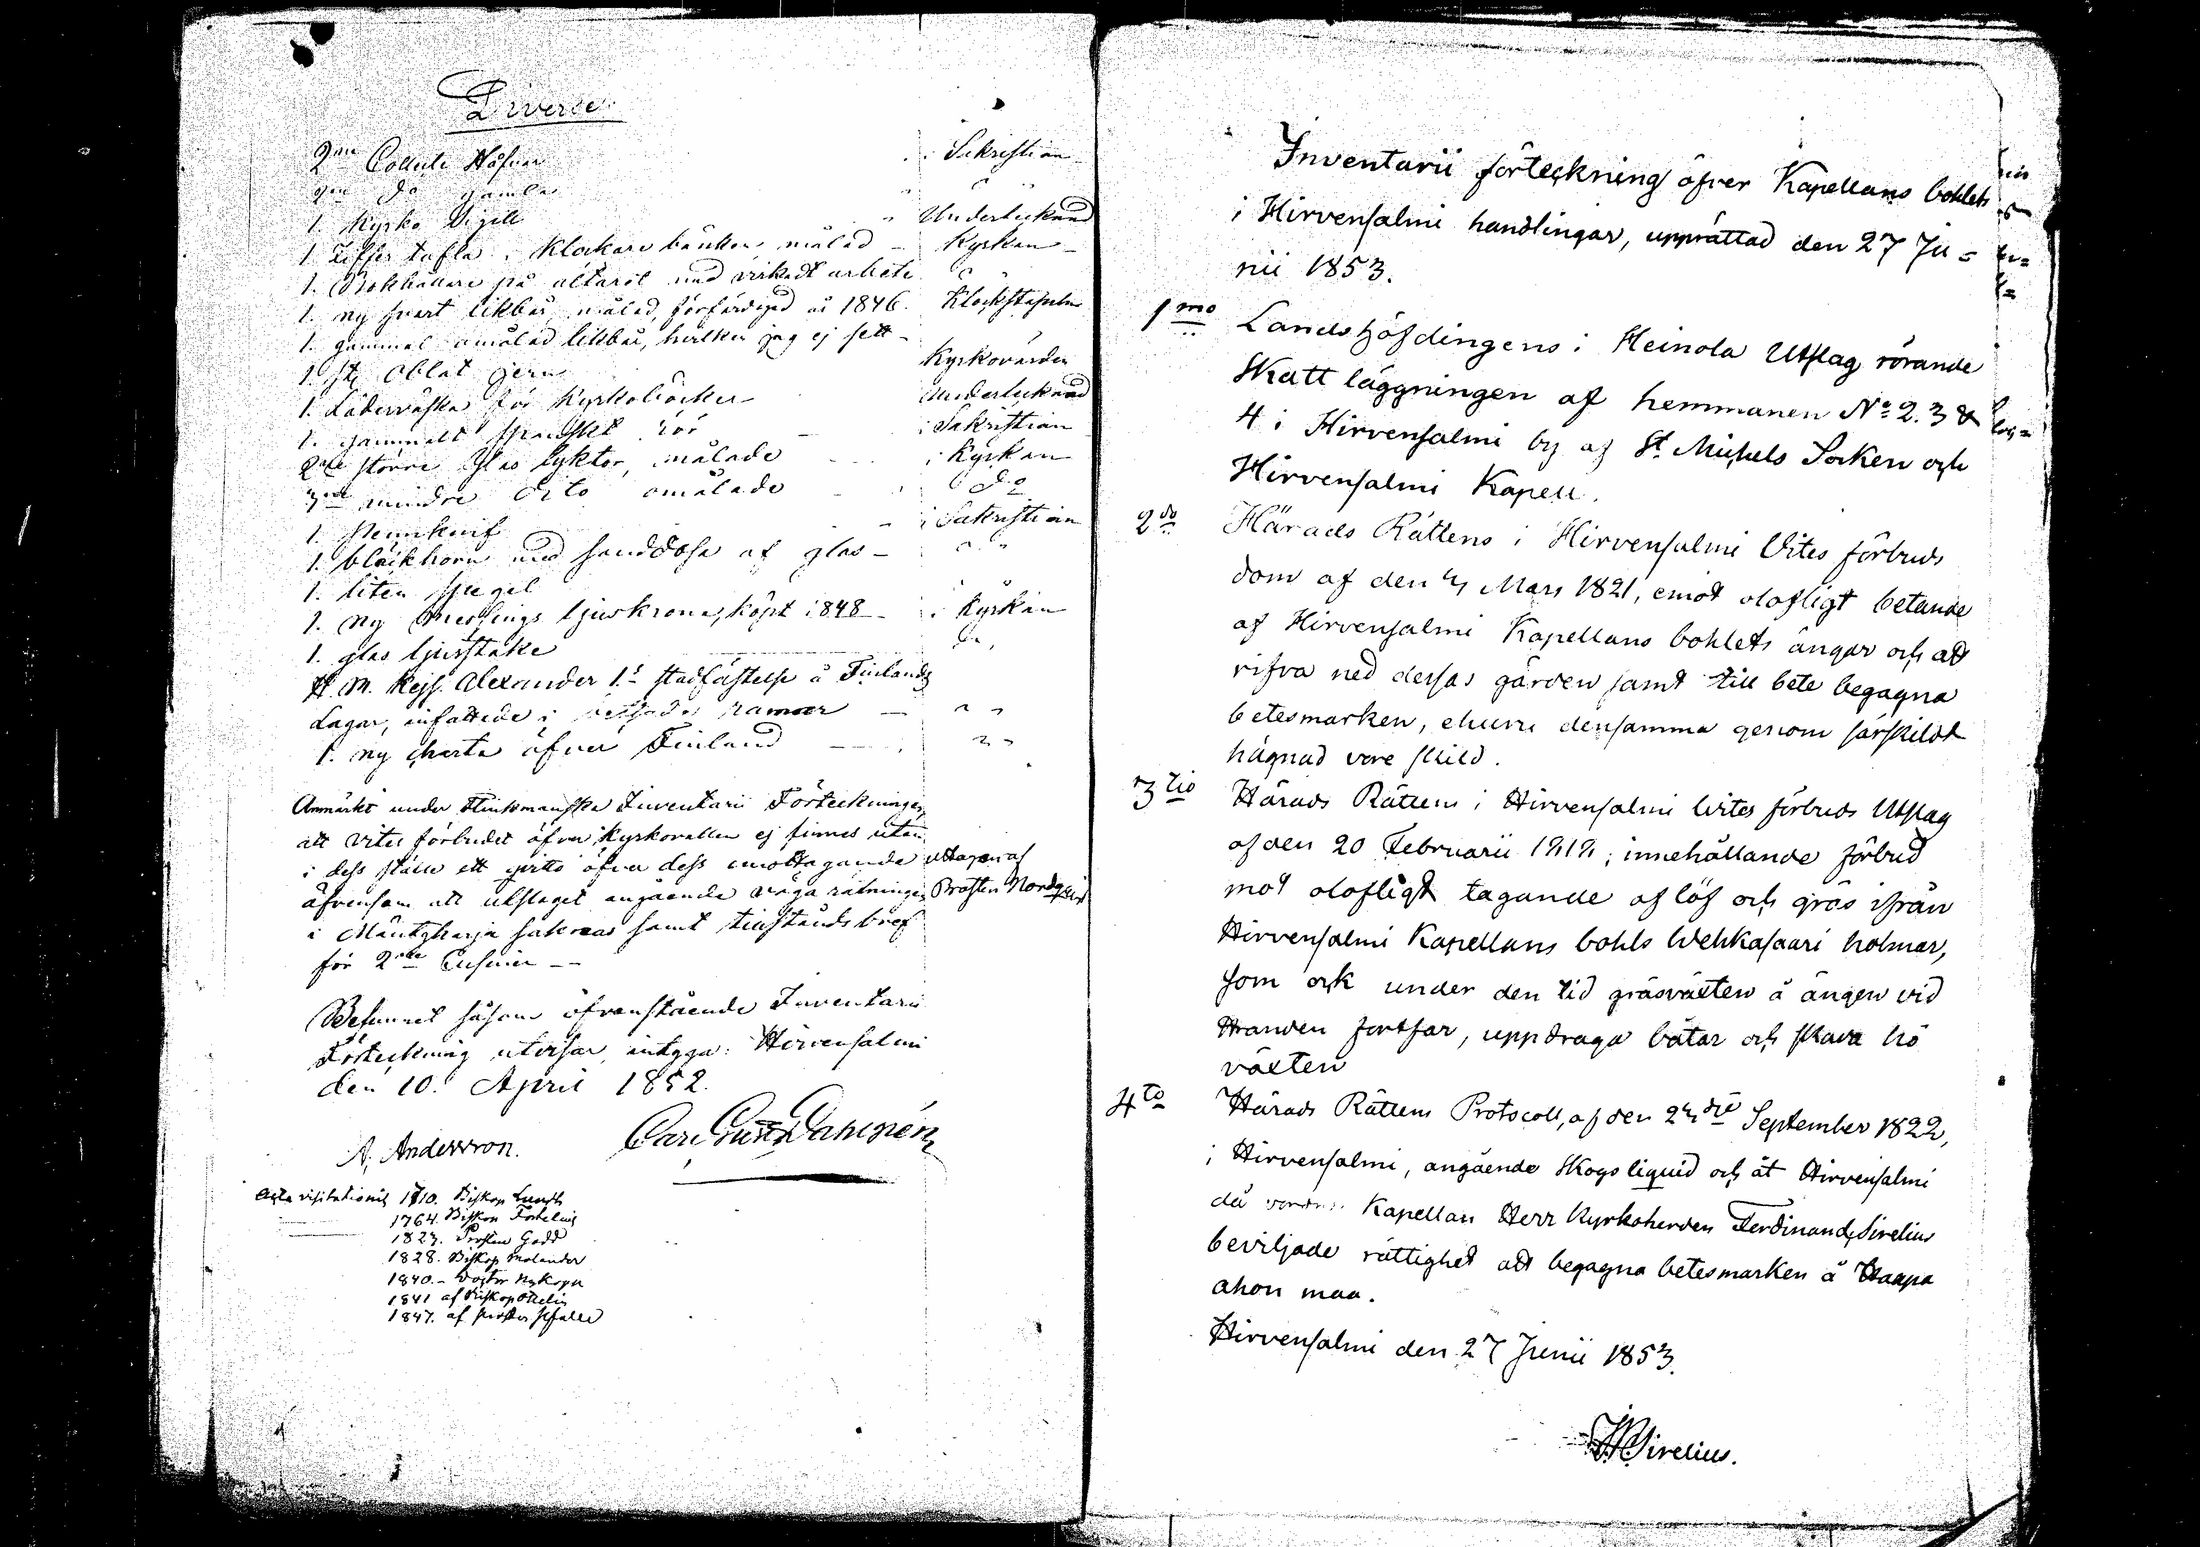 Diverse
2ne Collecte Håfvar i Sakristian
2ne do gamla "
1. Kyrko Sigill " Undertecknad
1. Ziffer tafla i Klockare bänken målad - Kyrkan
1. Bokhållare på altaret med virkadt arbete
1. ny svart likbår, målad, förfärdigad år 1846. Klockstapeln
1. gammal omålad likbår, hvilken jag ej sett -
1. st. Oblat jern Kyrkovärden
1. Läderväska för Kyrkoböcker Underteknad
1. gammalt spanskt rör - i Sakristian
2ne större Glas lyktor, målade - i Kyrkan
3ne mindre dito omålade - do
1. Pennknif - i Sakristian
1. bläckhorn med sanddosa af glas - " "
1. liten spegel
1. ny Messings ljuskrona, köpt 1848 - i Kyrkan
1. glas ljusstake do,
H. M. Kejs. Alexander 1.s stadfästelse å Finlands
Lagar, infattade i ramar — " "
1. ny charta öfver Finland — " "
Anmärkt under Flinkmanska Inventarii Förteckningen,
att vites förbudet öfver kyrkovallen ej finnes utan
i dess ställe ett qvitto öfver dess emottagande uttagen af
äfvensom att utslaget angående väga rätningen Prosten Nordqvist
i Mäntyharju saknas samt tillståndsbref
för 2ne
Befunnet såsom ofvanstående Inventarii
Förteckning utvisar, intyga: Hirvensalmi
den 10. April 1852.
A. Andersson. Carl Gust.
Acta visitationis 1710. Biskop
1764. Biskop
1827. Prosten Gadd
1828. Biskop Molander
1840. - Doctor Nykopp
1841 af Biskop Ottelin
1847. af
Inventarii förteckning öfver Kapellans bohlets
i Hirvensalmi handlingar, upprättad den 27 Ju=
nii 1853.
1mo Landshöfdingens i Heinola Utslag rörande
Skatt läggningen af hemmanen No 2. 3 &
4 i Hirvensalmi by af St Michels Socken och
Hirvensalmi Kapell.
2do Härads Rättens i Hirvensalmi Vites förbuds
dom af den 4 Mars 1821, emot olofligt betande
af Hirvensalmi Kapellans bohlets ängar och att
rifva ned dessas gärden samt till bete begagna
betesmarken, ehuru densamma genom särskildt
hägnad vore skild.
3tio Härads Rättens i Hirvensalmi Vites förbuds Utslag
af den 20 Februarii 1818; innehållande förbud
mot olofligt tagande af löf och gräs ifrån
Hirvensalmi Kapellans bohls Wehkasaari holmar,
som ock under den tid gräsväxten å ängen vid
stranden fortfar, uppdraga båtar och skada hö
växten
4to Härads Rättens Protocoll, af den 24de September 1822,
i Hirvensalmi, angående Skogs liquid och åt Hirvensalmi
då Kapellan Herr Kyrkoherden Ferdinand Sirelius
beviljade rättighet att begagna betesmarken å Haapa
ahon maa.
Hirvensalmi den 27 Junii 1853.
Sirelius.